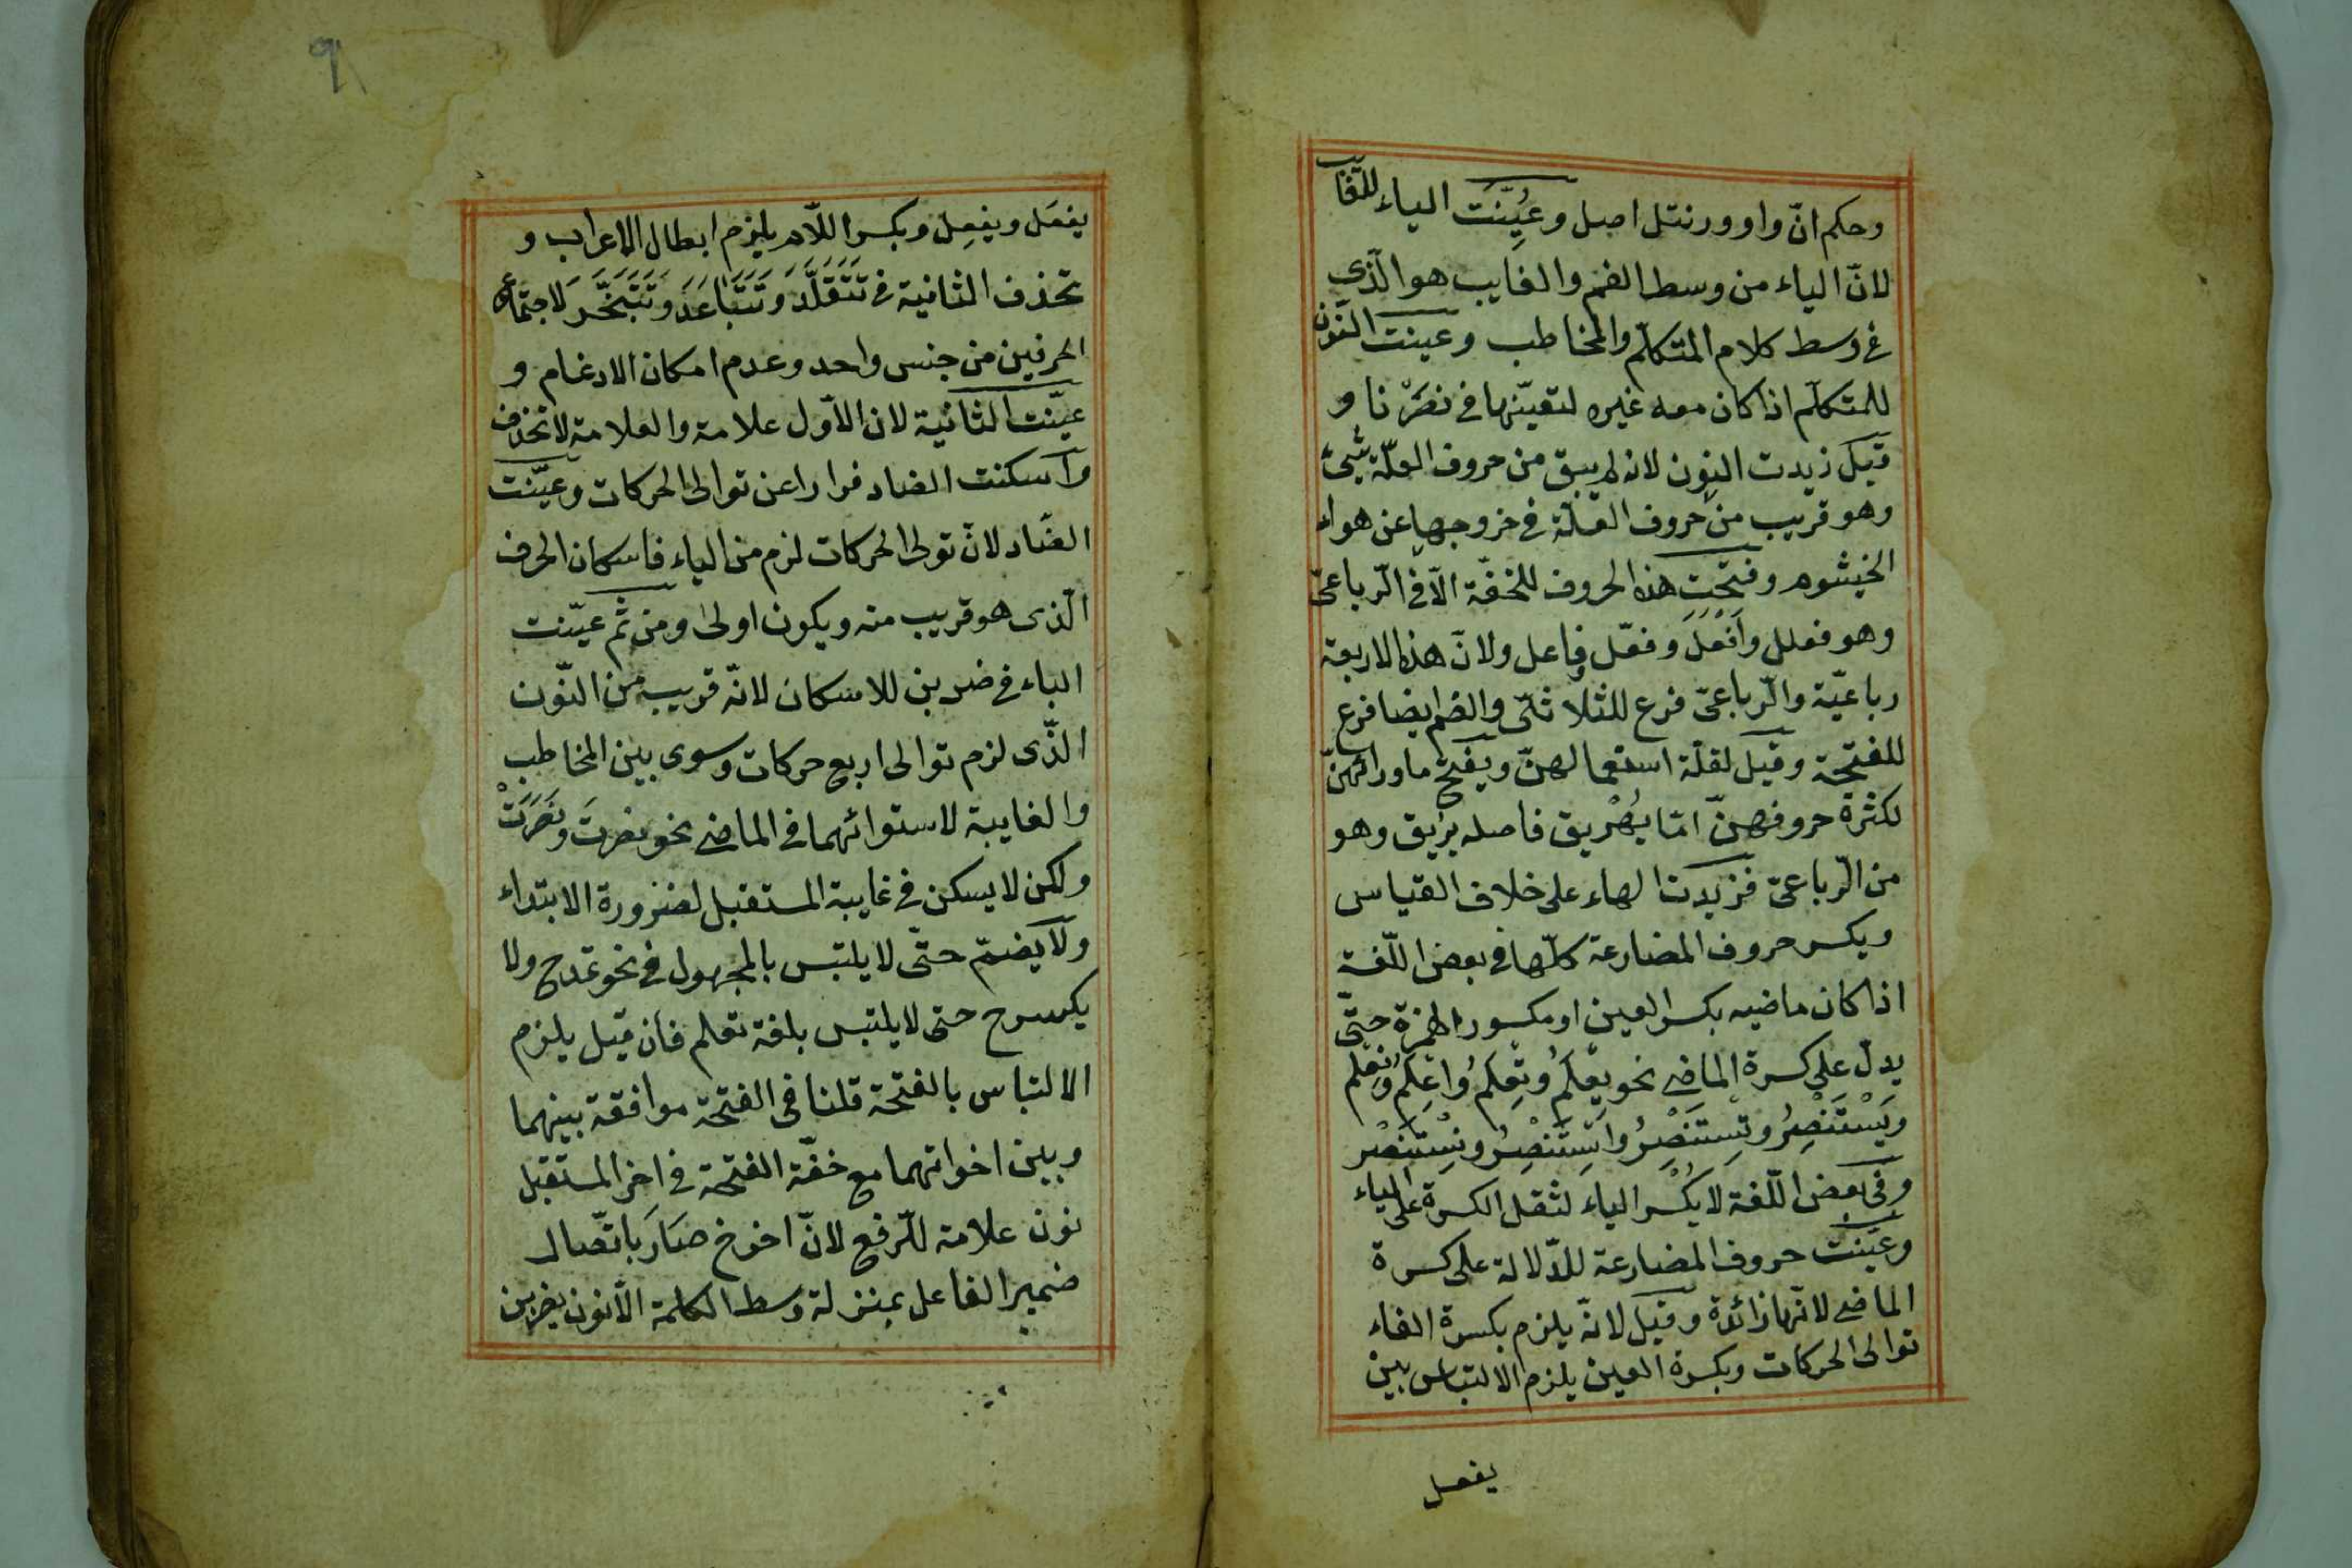 وحكم انّ واو ورنتل اصل وعُيِّنَت الياء للغّايب
لانّ الياء من وسط الفم والغايب هو الّذى
فى وسط كلام المتكلّم والمخاطب وعينت النّون
للمتكلّم اذا كان معه غيره لتعيّنها فى نصَرْنا و
قيل زيدت النون لانه لم يبق من حروف العلّة شئ
وهو قريب من حروف العلّة فى خروجها عن هواء
الخيشوم وفتحت هذه الحروف للخفّة الّا فى الّرباعىّ
وهو فعلل وَاَفْعَلَ وفعّل وفاعل ولانّ هذه الاربعة
رباعيّة والّرباعىّ فرع للثلاثىّ والضم ايضا فرع
للفتحة وقيل لقلّة استعمالهنّ ويفتح ما ورائهنّ
لكثرة حروفهنّ امّا يُهْريق فاصله يريق وهو
من الّرباعىّ فزيدت الهاء على خلاف القياس
ويكسر حروف المضارعة كلّها فى بعض اللّغة
اذا كان ماضيه بكسر العين او مكسور الهمزة حتّى
يدلّ على كسرة الماضى نحو يِعْلَمُ وتِعِلمُ وُاِعْلمُ ونِعْلم
ويَسْتَنْصِرُ وتِسِتَنْصِرُ وِاسْتَنْصِرُ ونِسْتَنْصْر
وفى بعض اللّغة لا يُكْسَر الياء لثقل الكسرة على الياء
وعيّنت حروف المضارعة للدّلالة على كسرة
الماضى لانّها زائدة وقيل لانّه يلزم بكسرة الفاء
توالى الحركات وبكسرة العين يلزم الالتباس بين
يفعل
٩
يفعَل ويفعِل وبكسر اللّام يلزم ابطال الاعراب و
تحذف الثانية فى تَتَقَلَّدَ وَتَتَبَاعَدَ وَتَتَبَخْتَرَ لاجتماع
الحرفين من جنس واحد وعدم امكان الادغام و
عيّنت الثانية لان الاوّل علامة والعلامة لا تحذف
واسكنت الضاد فرارا عن توالى الحركات وعيّنت
الضّاد لانّ تولى الحركات لزم من الياء فاسكان الحرف
الّذى هو قريب منه ويكون اولى ومن ثمّ عيّنت
الباء فى ضربن للاسكان لانّه قريب من النّون
الذّى لزم توالى اربع حركات وسوى بين المخاطب
والغايبة لاستوائهما فى الماضى نحو نصرتَ ونَصَرَتْ
ولكن لا يسكن فى غايبة المستقبل لضرورة الابتداء
ولا يضمّ حتّى لا يلتبس بالمجهول فى نحو تمدح ولا
يكسرح حتى لا يلتبس بلغة تعلم فان قيل يلزم
الالتباس بالفتحة قلنا فى الفتحة موافقة بينهما
وبين اخواتهما مع خفّة الفتحة فى اخر المستقبل
نون علامة للّرفع لانّ اخرح صَارَ باتّصال
ضمير الفاعل بمنزلة وسط الكلمة الّا نون يضربن